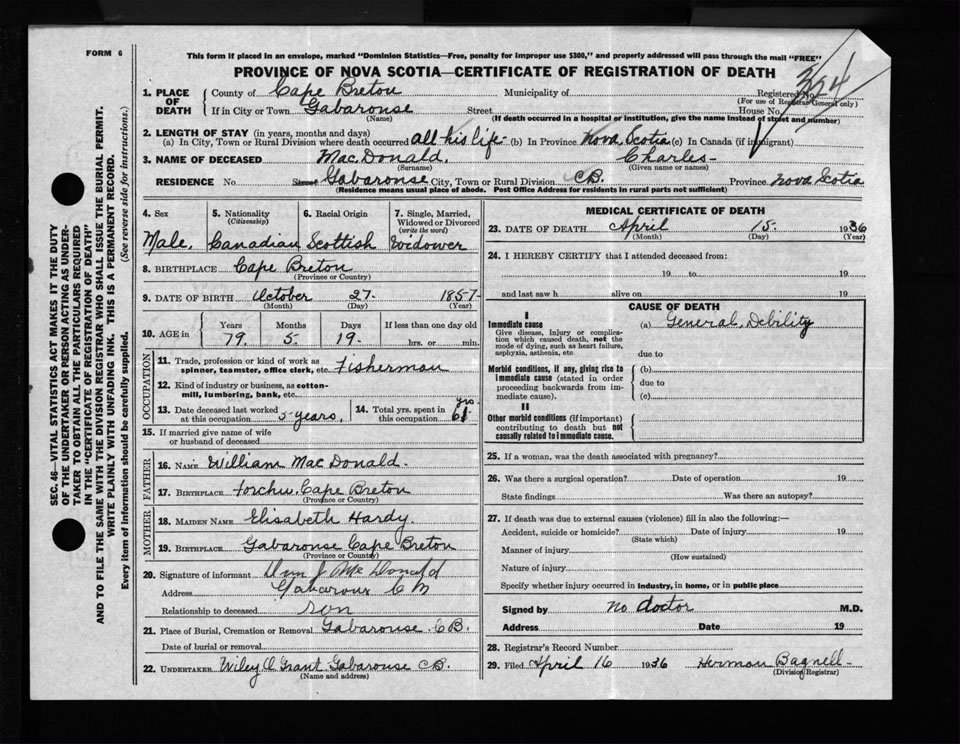 FORM 6
This form if placed in an envelope, marked "Dominion Statistics—Free, penalty for improper use $300," and properly addressed will pass through the mail "FREE"
PROVINCE OF NOVA SCOTIA—CERTIFICATE OF REGISTRATION OF DEATH
1. PLACE OF DEATH County of Cape Breton Municipality of Registered No.
(For use of Registrar General only)
If in City or Town Gabarouse Street House No.
(Name) (If death occurred in a hospital or institution, give the name instead of street and number)
2. LENGTH OF STAY (in years, months and days)
(a) In City, Town or Rural Division where death occurred all his life (b) In Province Nova Scotia (c) In Canada (if immigrant)
3. NAME OF DECEASED MacDonald, Charles-
(Surname) (Given name or names)
RESIDENCE No Street Gabarouse City, Town or Rural Division CB. Province Nova Scotia
(Residence means usual place of abode. Post Office Address for residents in rural parts not sufficient)
SEC. 46—VITAL STATISTICS ACT MAKES IT THE DUTY
OF THE UNDERTAKER OR PERSON ACTING AS UNDER-
TAKER TO OBTAIN ALL THE PARTICULARS REQUIRED
IN THE "CERTIFICATE OF REGISTRATION OF DEATH"
AND TO FILE THE SAME WITH THE DIVISION REGISTRAR WHO SHALL ISSUE THE BURIAL PERMIT.
WRITE PLAINLY WITH UNFADING INK. THIS IS A PERMANENT RECORD.
Every item of information should be carefully supplied. (See reverse side for instructions.)
4. Sex 5. Nationality (Citizenship) 6. Racial Origin 7. Single, Married, Widowed or Divorced (write the word)
Male. Canadian Scottish Widower
8. BIRTHPLACE Cape Breton
(Province or Country)
9. DATE OF BIRTH October 27- 1857-
(Month) (Day) (Year)
10. AGE in Years Months Days If less than one day old
79. 5. 19. hrs. or min.
OCCUPATION
11. Trade, profession or kind of work as
spinner, teamster, office clerk, etc. Fisherman
12. Kind of industry or business, as cotton-
mill, lumbering, bank, etc.
13. Date deceased last worked at this occupation 5-years, 14. Total yrs. spent in this occupation 61 yrs-
15. If married give name of wife
or husband of deceased
FATHER
16. NAME William MacDonald.
17. BIRTHPLACE Forchu, Cape Breton
(Province or Country)
MOTHER
18. MAIDEN NAME Elisabeth Hardy.
19. BIRTHPLACE Gabarouse Cape Breton
(Province or Country)
20. Signature of informant Wm J McDonald
Address Gabarous C B
Relationship to deceased son
21. Place of Burial, Cremation or Removal Gabarouse. C B.
Date of burial or removal
22. UNDERTAKER Wiley O Grant Gabarouse CB.
(Name and address)
MEDICAL CERTIFICATE OF DEATH
23. DATE OF DEATH April 15. 1936
(Month) (Day) (Year)
24. I HEREBY CERTIFY that I attended deceased from:
19 to 19
and last saw h alive on 19
CAUSE OF DEATH
I
Immediate cause (a) General Debility
Give disease, injury or complica-
tion which caused death, not the
mode of dying, such as heart failure,
asphyxia, asthenia, etc. due to
Morbid conditions, if any, giving rise to (b)
immediate cause (stated in order due to
proceeding backwards from im-
mediate cause). (c)
II
Other morbid conditions (if important)
contributing to death but not
causally related to immediate cause.
25. If a woman, was the death associated with pregnancy?
26. Was there a surgical operation? Date of operation 19
State findings Was there an autopsy?
27. If death was due to external causes (violence) fill in also the following:—
Accident, suicide or homicide? Date of injury 19
(State which)
Manner of injury
(How sustained)
Nature of injury
Specify whether injury occurred in industry, in home, or in public place
Signed by no doctor M.D.
Address Date 19
28. Registrar's Record Number
29. Filed April 16 1936 Herman Bagnell-
(Division Registrar)